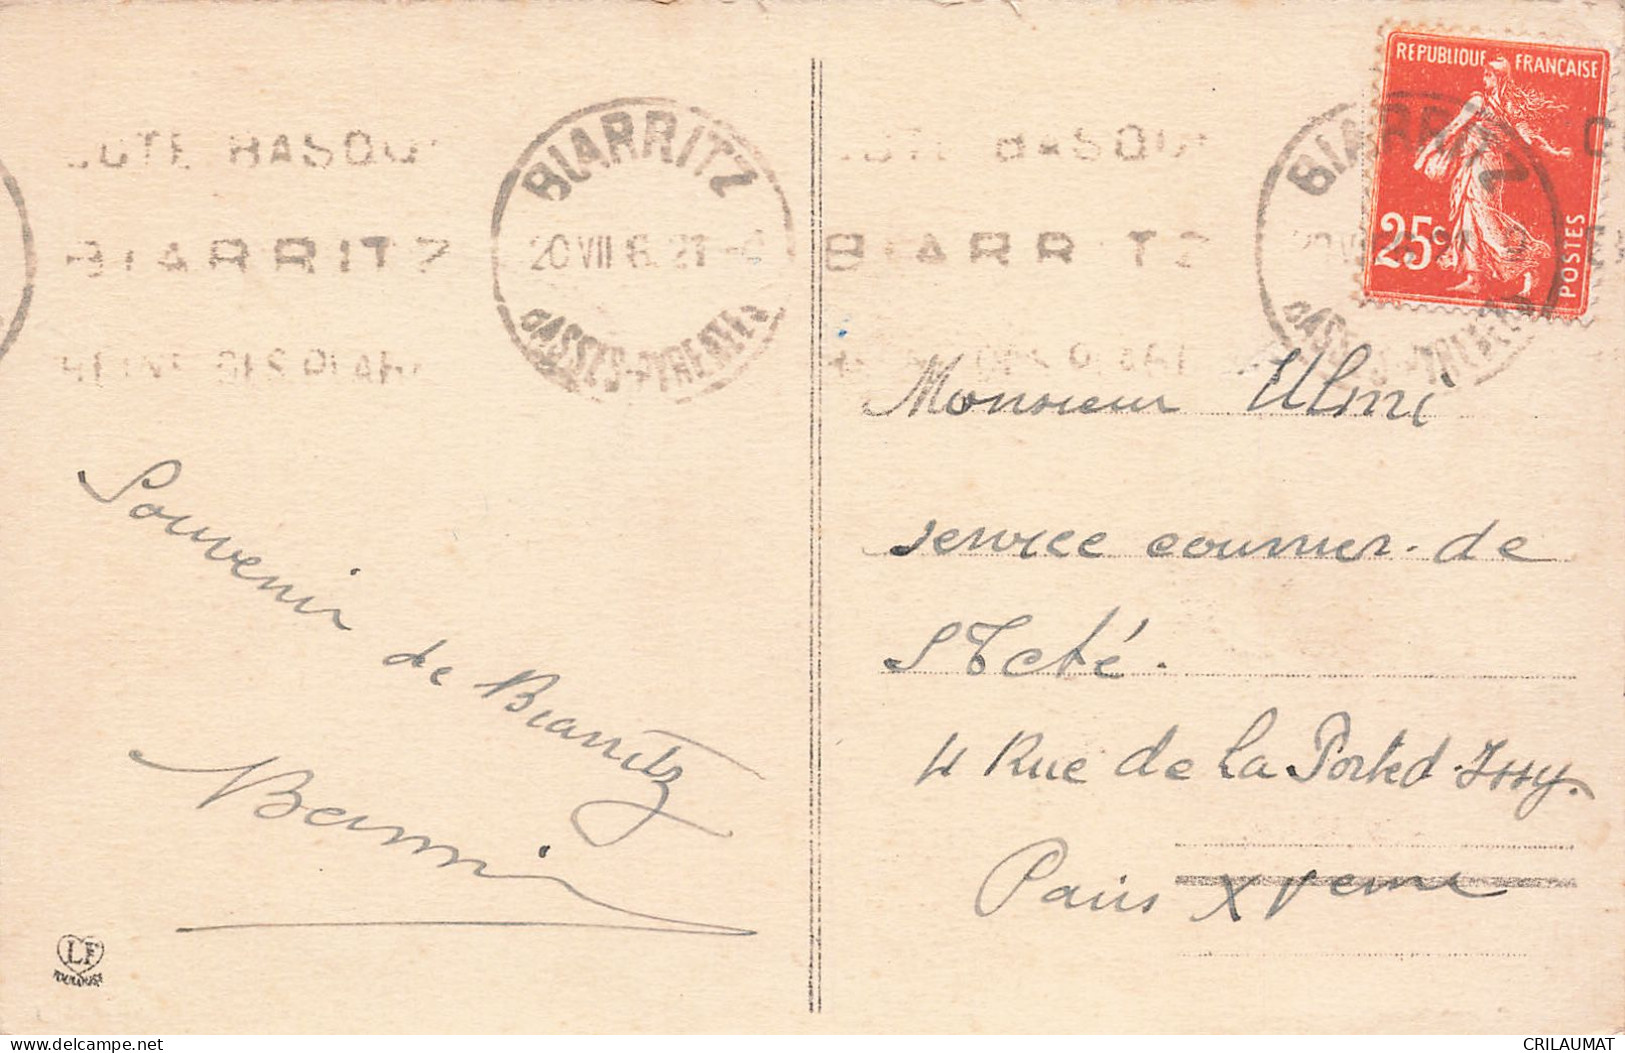 REPUBLIQUE FRANÇAISE
25c
POSTES
COTE BASQUE
BIARRITZ
REINE DES PLAGES
BIARRITZ
20 VII
BASSES-PYRENEES
COTE BASQUE
BIARRITZ
BIARRITZ
BASSES-PYRENEES
Souvenir
de Biarritz
LF
TOULOUSE
Monsieur Ulmi
service courrier. de
Sté.
4 Rue de La Porte d. Issy.
Paris XVeme
www.delcampe.net
CRILAUMAT